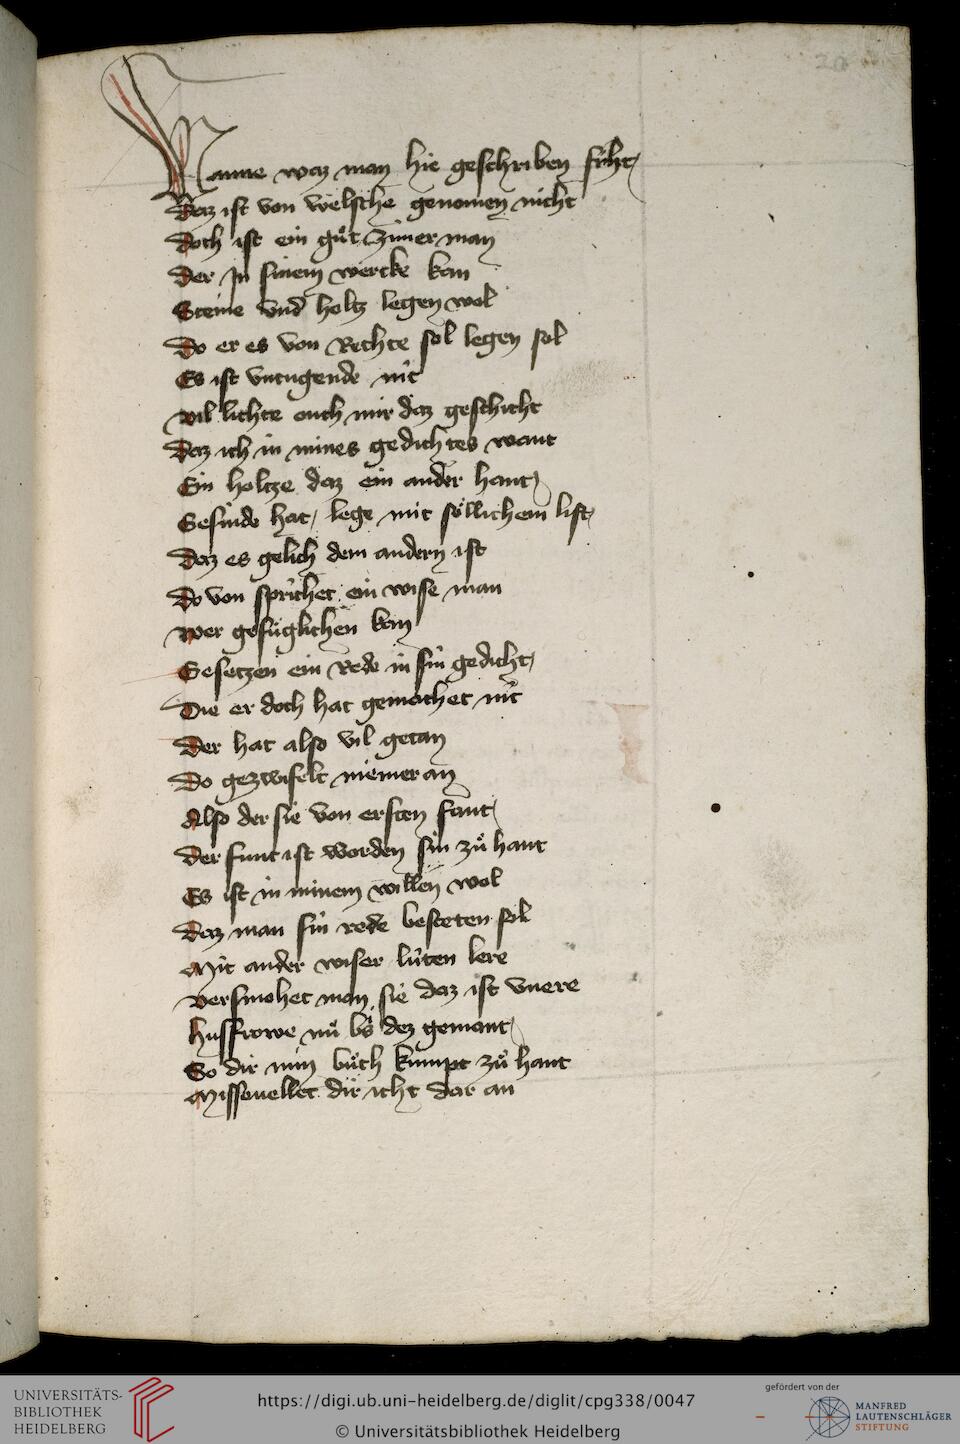 20
Wanne waz man hie geschriben siht
Daz ist von welsche genomen nicht
Doch ist ein guͦt zimerman
Der In sinem wercke kan
Steine vnd holtz legen wol
Do er es von Rechte sol legen sol
Es ist vntugende nit
vil lichte ouch mir daz geschicht
Daz ich in mines gedichtes want
Ein holtze daz ein ander hant
Gesinde hat lege mit söllichem list
Daz es gelich dem andern ist
Do von sprichet ein wise man
wer gefüglichen kan
Gesetzen ein Rede in sin gedicht
Die er doch hat gemachet nit
Der hat also vil getan
Do gezwifelt niemer an
Also der sie von ersten fant
Der funt ist worden sin zuͦ hant
Es ist in minem willen wol
Daz man sin rede besteten sol
Mit ander wiser lüten lere
versmohet man sie daz ist vnere
husfrowe nuͦ bis dez gemant
So dir min buͦch kumpt zuͦ hant
Missevellet dir icht dar an
UNIVERSITÄTS-
BIBLIOTHEK
HEIDELBERG
https://digi.ub.uni-heidelberg.de/diglit/cpg338/0047
© Universitätsbibliothek Heidelberg
gefördert von der
MANFRED
LAUTENSCHLÄGER
STIFTUNG